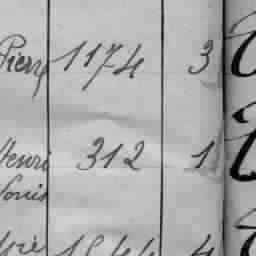 Pierre 1174 3
Henri 312 1
Louis